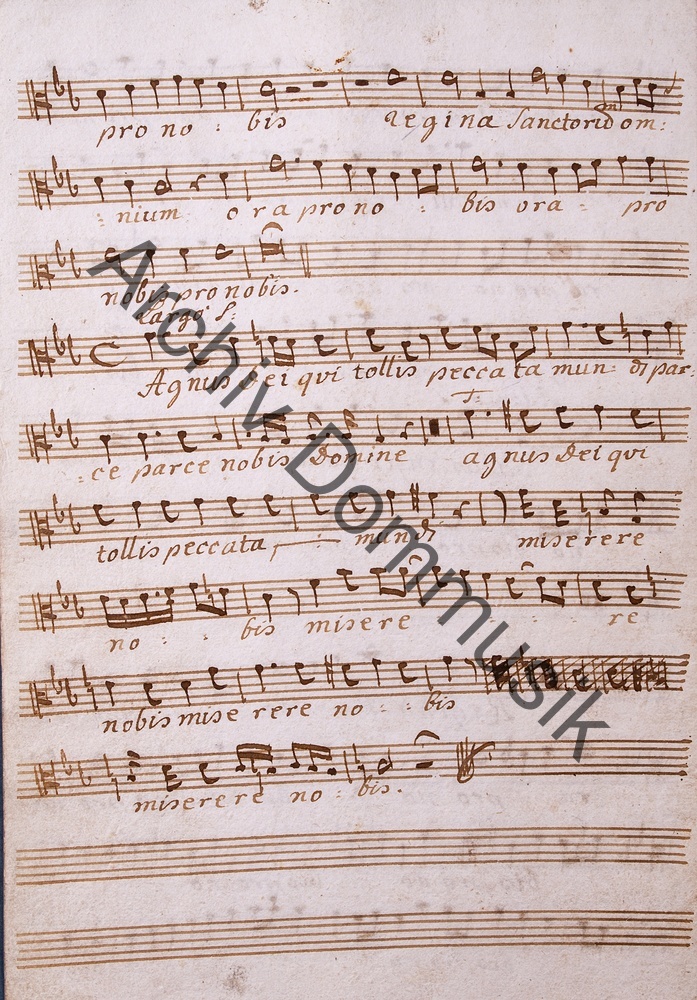 pro no : bis Regina Sanctorum om:
: nium ora pro no : bis ora - pro
nobis pro nobis.
Largo S:
Agnus Dei qui tollis peccata mun: di par:
:ce parce nobis Domine agnus Dei qui
tollis peccata mundi miserere
no : : bis misere : : : re
nobis miserere no : : bis
miserere no : bis.
Archiv Dommusik